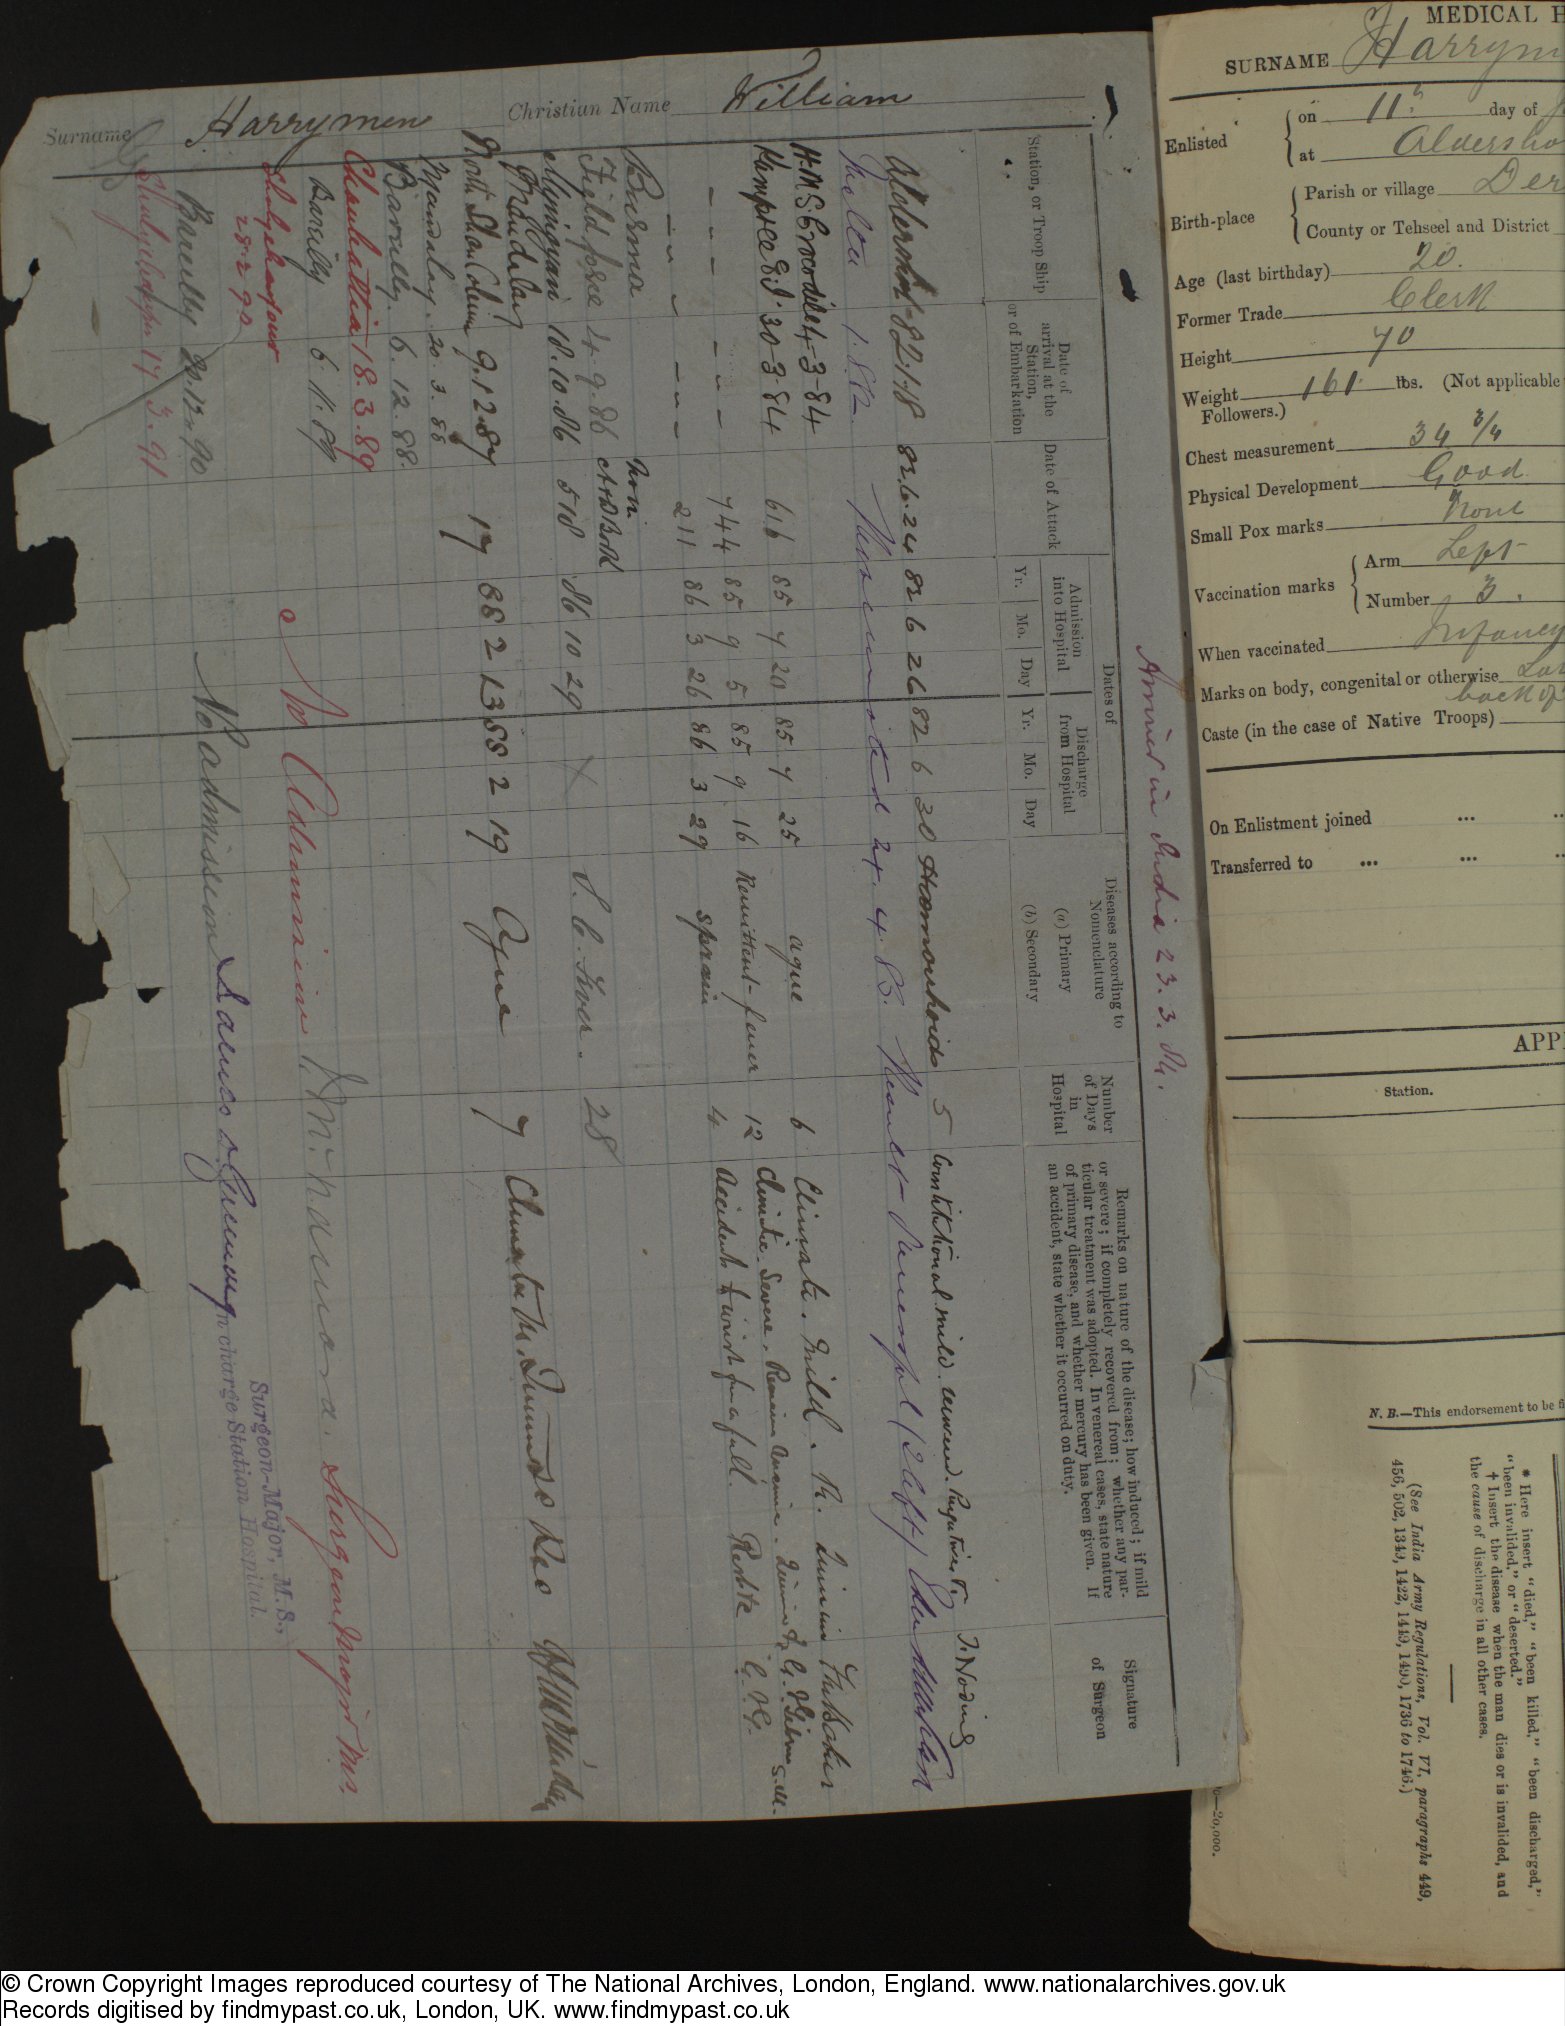 Surname Harrymen Christian Name William
Station, or Troop Ship
Date of arrival at the Station, or of Embarkation
Date of Attack
Dates of
Admission into Hospital
Yr. Mo. Day
Discharge from Hospital
Yr. Mo. Day
Diseases according to Nomenclature
(a) Primary
(b) Secondary
Number of Days in Hospital
Remarks on nature of the disease; how induced; if mild
or severe; if completely recovered from; whether any par-
ticular treatment was adopted. In venereal cases, state nature
of primary disease, and whether mercury has been given. If
an accident, state whether it occurred on duty.
Signature of Surgeon
Arrived in India 23.3.84.
Aldershot 82.1.18 82.6.24 82 6 26 82 6 30 Haemorrhoids 5 Constitutional mild. recovered. Purgatives J. Noding
H.M.S. Crocodile 4-3-84
Kamptee E.I. 30-3-84 616 85 7 20 85 7 25 ague 6 Climate. Mild.
744 85 9 5 85 9 16 Remittent fever 12 Climatic. Severe.
211 86 3 26 86 3 29 Sprain 4 Accident to wrist from a fall.
Burma
Field force 4.9.86
Myingyan 18.10.86 518 86 10 29 S. C. Fever. 28
Mandalay
North Shan Column 9.12.87 17 88 2 13 88 2 19 Ague 7
Mandalay. 20.3.88
Bareilly. 6.12.88.
Chaubattia 18.3.89
Bareilly 6.11.89
Shahjehanpur
28.2.90
No Admission Surgeon Major M.S.
Bareilly 20.12.90
No admission
Surgeon-Major, M. S.,
In charge Station Hospital.
Shahjehanpur 17.3.91
MEDICAL H
SURNAME Harrym
Enlisted on 11 day of
at Aldersho
Birth-place Parish or village Der
County or Tehseel and District
Age (last birthday) 20.
Former Trade Clerk
Height 70
Weight 161 lbs. (Not applicable
Followers.)
Chest measurement 34 3/4
Physical Development Good
Small Pox marks None
Vaccination marks Arm Left
Number 3.
When vaccinated Infancy
Marks on body, congenital or otherwise
back of
Caste (in the case of Native Troops)
On Enlistment joined ... ..
Transferred to ... ... ..
APP
Station.
N. B.—This endorsement to be fi
* Here insert “died,” “been killed,” “been discharged,”
“been invalided,” or “deserted.”
† Insert the disease when the man dies or is invalided, and
the cause of discharge in all other cases.
(See India Army Regulations, Vol. VI, paragraphs 449,
456, 502, 1349, 1422, 1449, 1490, 1736 to 1746.)
—20,000.
© Crown Copyright Images reproduced courtesy of The National Archives, London, England. www.nationalarchives.gov.uk
Records digitised by findmypast.co.uk, London, UK. www.findmypast.co.uk